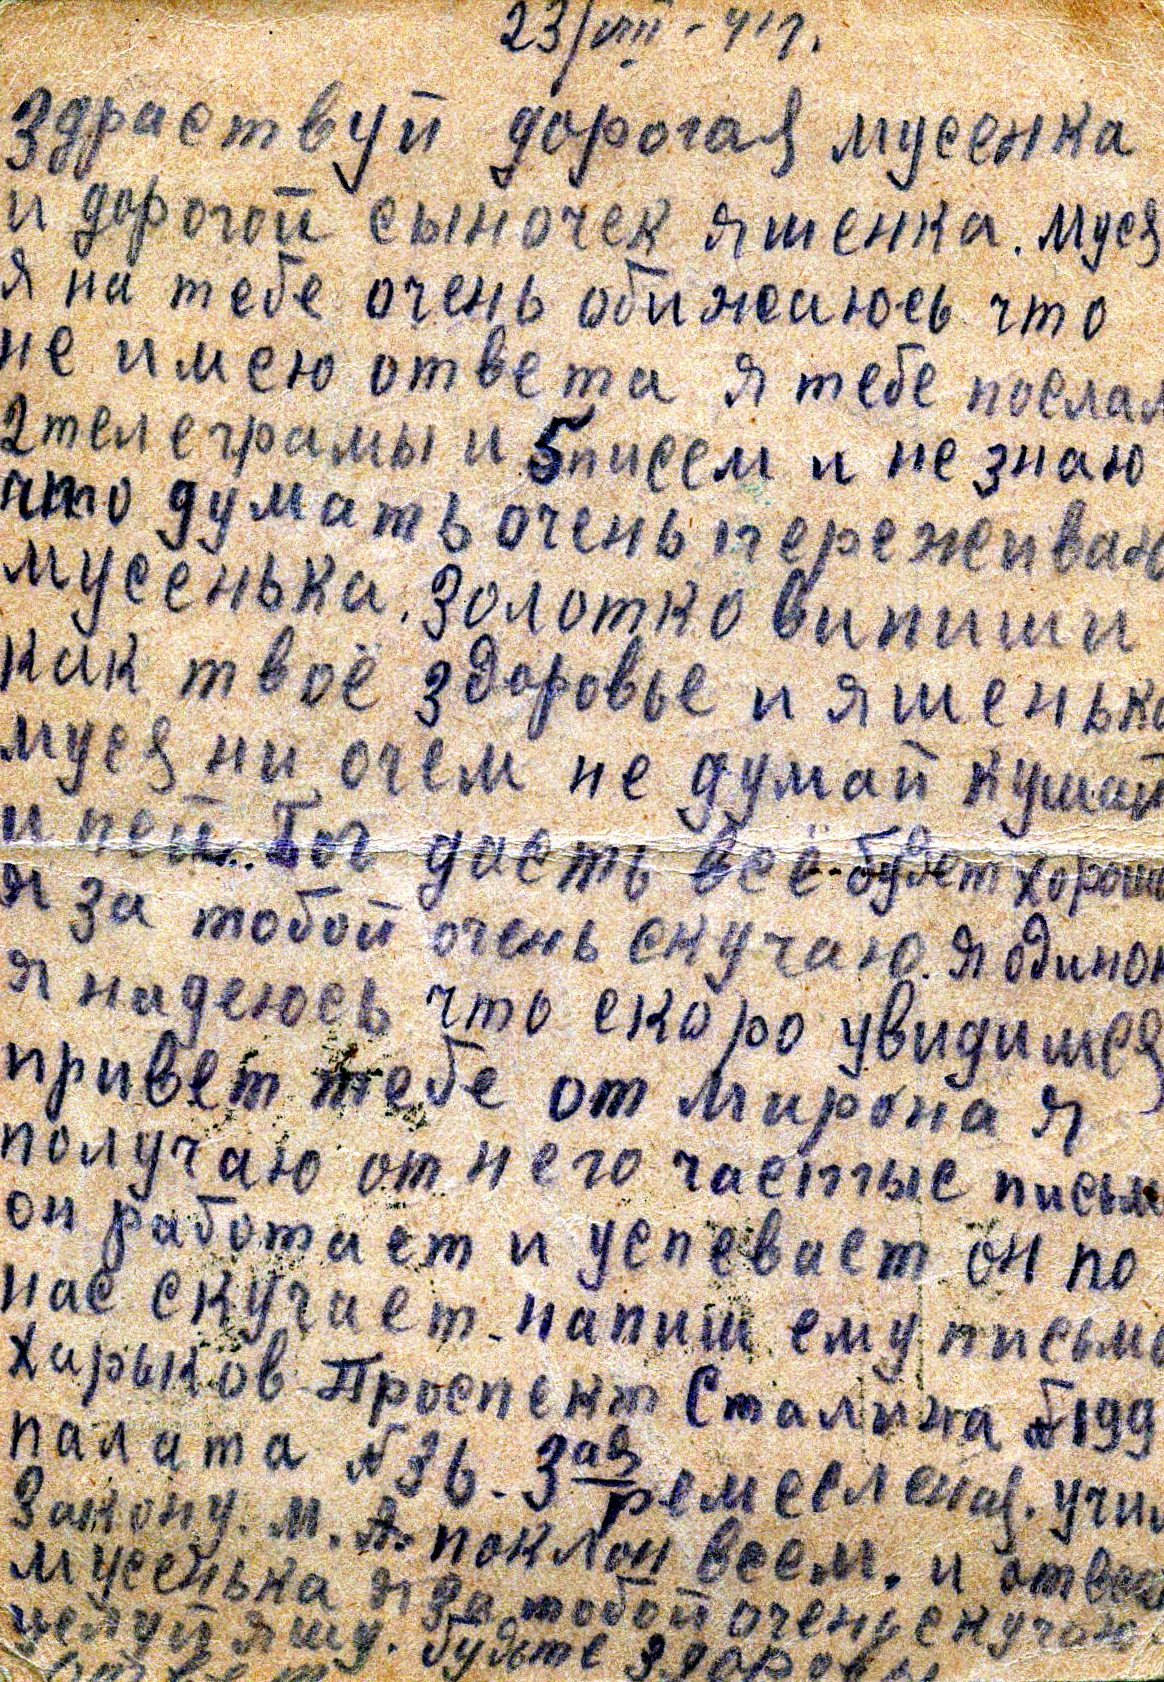 23/VIII - 41г.
Здраствуй дорогая мусенка
и дорогой сыночек яшенка. муся
я на тебе очень обижаюсь что
не имею ответа я тебе послал
2 телеграмы и 5 писем и не знаю
что думать очень пережеваю
мусенька. Золотко випиши
как твоё здоровье и яшенька
муся ни очем не думай кушай
и пей. Бог дасть всё будет хорошо
я за тобой очень скучаю. я одинок
я надеюсь что скоро увидимся
привет тебе от мирона я
получаю от него частые письм
он работает и успевает он по
нас скучает. напиш ему письмо
Харьков Проспект Сталина №199
палата №36. 3ая ремесленая. учил
Закону. М. А. поклон всем. и ответ
мусенька я за тобой очень скучаю
целуй яшу. будьте здоровы